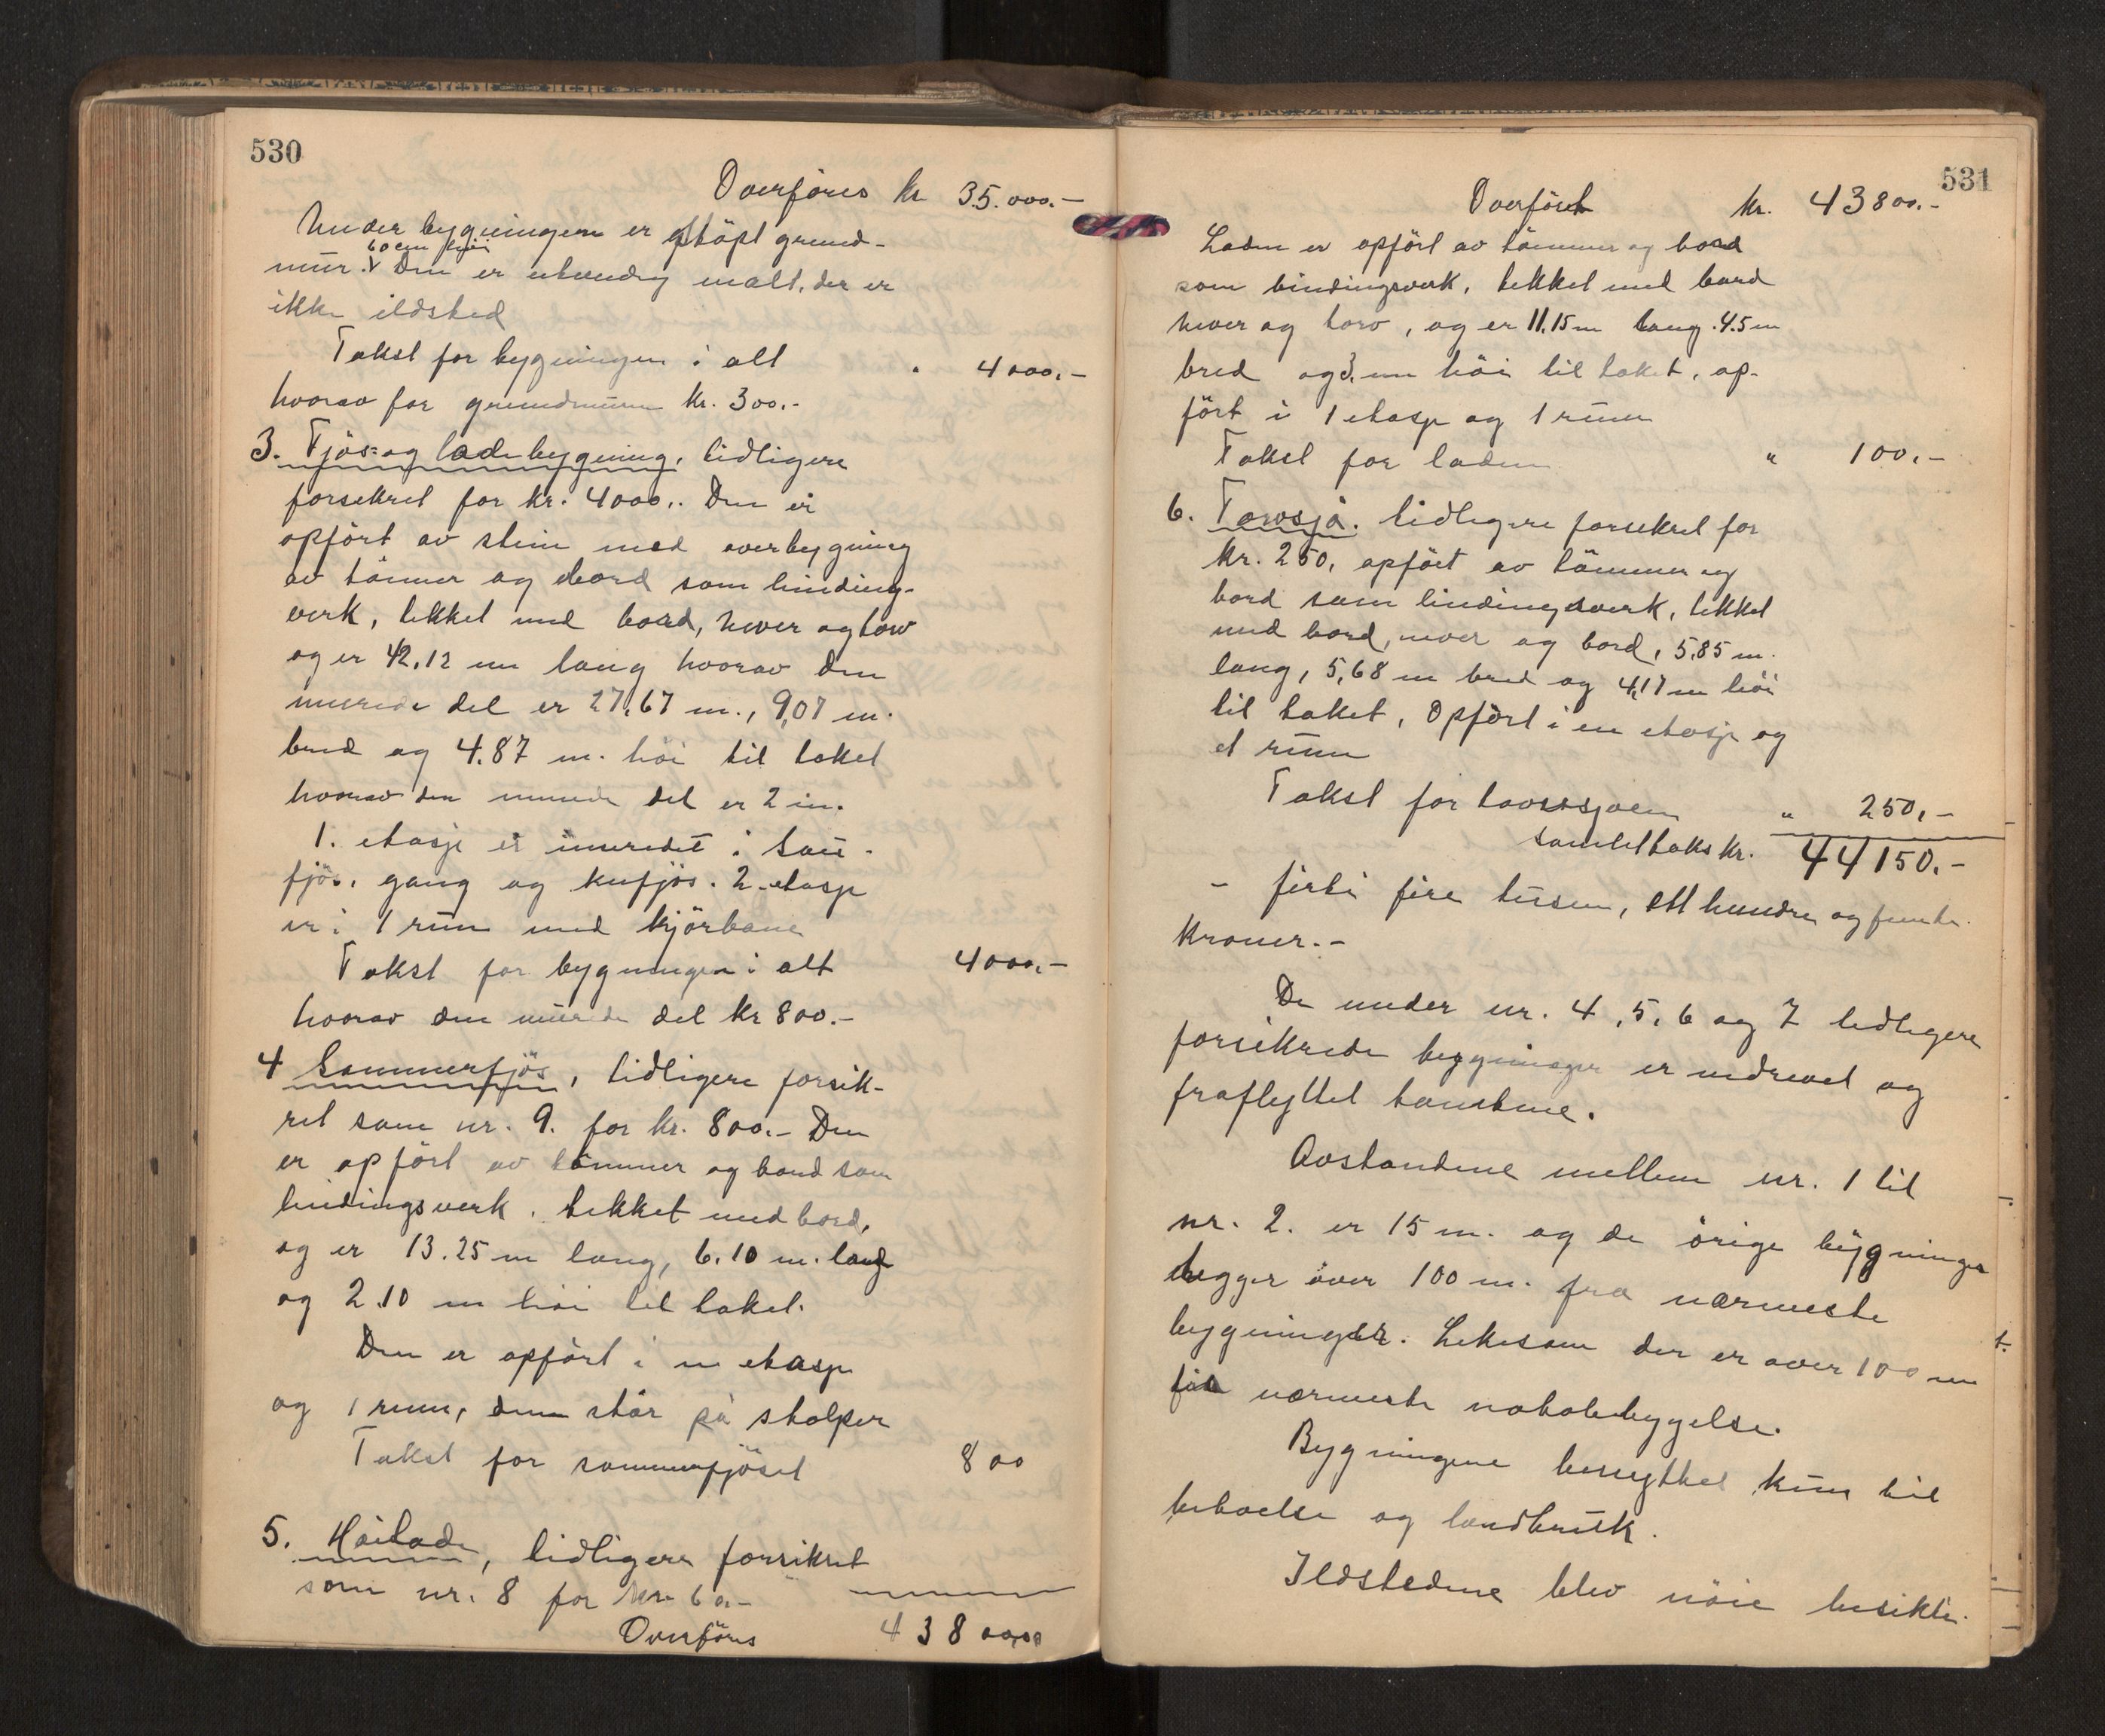 530
Overføres kr 35.000.-
Under bygningen er støpt grund-
60 cm høi
mur. Den er utvendig malt, der er
ikke ildsted
Takst for bygningen i alt " 4000.-
hvorav for grundmuren kr. 300.-
3. Fjøs- og ladebygning, tidligere
forsekret for kr. 4000.. Den er
opført av stein med overbygning
av tømmer og bord som binding-
verk, tekket med bord, never og torv
og er 42,12 m lang hvorav den
murede del er 27,67 m., 9,07 m.
bred og 4.87 m. høi til taket
hvorav den murede del er 2 m.
1. etasje er innredet i sau-
fjøs, gang og kufjøs. 2. etasje
er i 1 rum med kjørbane
Takst for bygningen i alt 4000.-
hvorav den murede del kr 800.-
4 Sommerfjøs, tidligere forsik-
ret som nr. 9. for kr. 800.- Den
er opført av tømmer og bord som
bindingsverk. tekket med bord,
og er 13.25 m lang, 6.10 m. lang
og 2.10 m høi til taket.
Den er opført i en etasje
og 1 rum, den står på stolper
Takst for sommerfjøset 800
5. Høilade, tidligere forsikret
som nr. 8 for kr. 60.-
Overføres 43800,00
531
Overført kr. 43800.-
Laden er opført av tømmer og bord
som bindingsverk, tekket med bord
never og torv, og er 11,15 m lang. 4.5 m
bred og 3. m høi til taket, op-
ført i 1 etasje og 1 rum
Takst for laden " 100.-
6. Torvsjå. tidligere forsekret for
kr. 250, opført av tømmer og
bord som bindingsverk, tekket
med bord, never og bord, 5,85 m.
lang, 5,68 m bred og 4,17 m høi
til taket, Opført i en etasje og
et rum
Takst for torvsjaen " 250,-
samlet takst kr. 44150.-
- firti fire tusen, ett hundre og femti
kroner.-
De under nr. 4, 5, 6 og 7 tidligere
forsikrede bygninger er nedrevet og
fraflyttet tomtene.
Avstandene mellem nr. 1 til
nr. 2. er 15 m. og de örige bygninger
ligger över 100 m. fra nærmeste
bygninger. Likesom der er over 100 m
fra nærmeste nabobebyggelse.
Bygningene benyttes kun til
beboelse og landbruk.
Ildstedene blev nöie besikti-